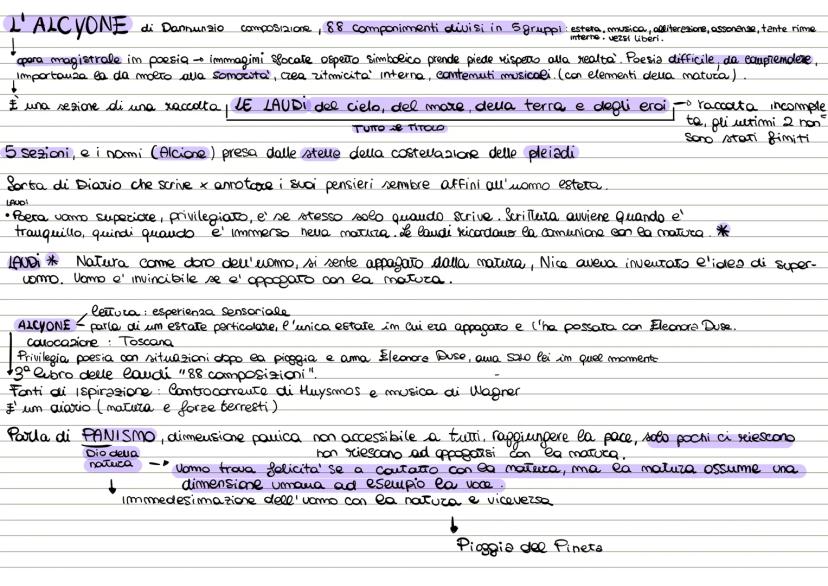 L'ALCYONE di Dannunzio composizione, 88 componimenti divisi in 5 gruppi: esteta, musica, allitterazione, assonanze, tante rime
interne. versi liberi.
opera magistrale in poesia → immagini sfocate aspetto simbolico prende piede rispetto alla realtà. Poesia difficile da comprendere,
importanza la da molto alla sonorità, crea ritmicità interna, contenuti musicali. (con elementi della natura).
È una sezione di una raccolta LE LAUDI del cielo, del mare, della terra e degli eroi → raccolta incomple
TUTTO IL TITOLO
ta, gli ultimi 2 non
sono stati finiti
5 sezioni, e i nomi (Alcione) presa dalle stelle della costellazione delle pleiadi
Sorta di Diario che scrive x annotare i suoi pensieri sempre affini all'uomo esteta.
LAUDI
• Poeta uomo superiore, privilegiato, e' se stesso solo quando scrive. Scrittura avviene quando e'
tranquillo, quindi quando e' immerso nella natura. Le laudi ricordano la comunione con la natura. *
LAUDI * Natura come dono dell'uomo, si sente appagato dalla natura, Nice aveva inventato l'idea di super-
uomo. Uomo e' invincibile se e' appagato con la natura.
lettura: esperienza sensoriale
ALCYONE - parla di un estate particolare, l'unica estate in cui era appagato e l'ha passata con Eleonora Duse.
collocazione: Toscana
Privilegia poesia con situazioni dopo la pioggia e ama Eleonora Duse, ama solo lei in quel momento
3° libro delle laudi "88 composizioni".
Fonti di ispirazione: Controcorrente di Huysmos e musica di Wagner
E' un diario (natura e forze terresti)
Parla di PANISMO, dimensione panica non accessibile a tutti. raggiungere la pace, solo pochi ci riescono
Dio della
natura
non riescono ad appagarsi con la natura.
→ Uomo trova felicita' se a contatto con la natura, ma la natura assume una
dimensione umana ad esempio la voce.
immedesimazione dell'uomo con la natura e viceversa
Pioggia del Pineta